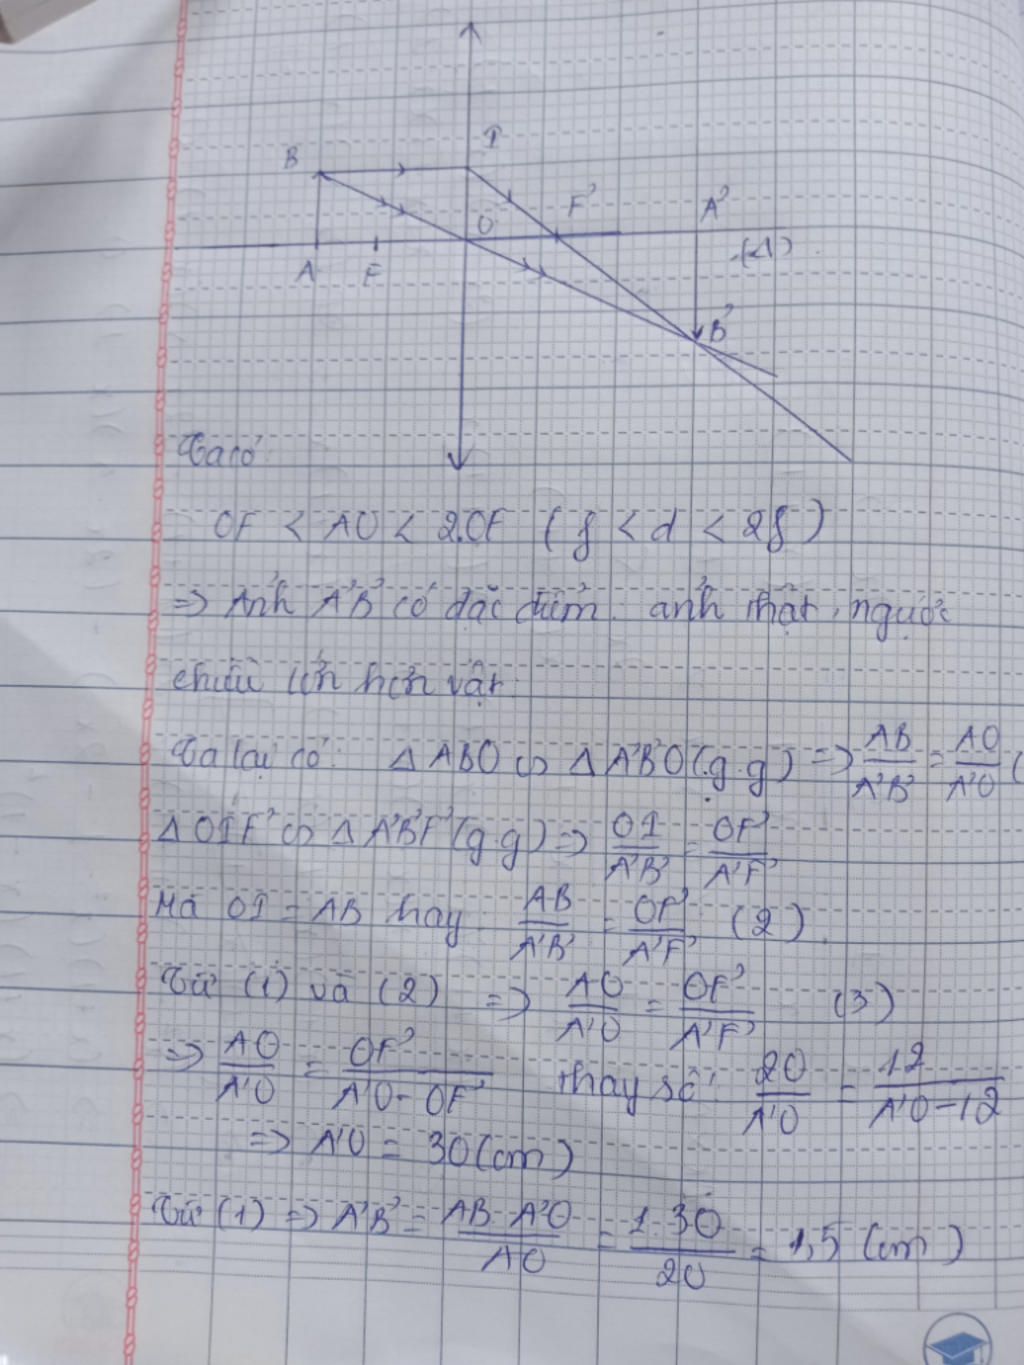 I
B
F'
A'
O
(Δ)
A
F
B'
Ta có
OF < AO < 2.OF ( f < d < 2f )
=> Ảnh A'B' có đặc điểm: ảnh thật, ngược
chiều lớn hơn vật.
Ta lại có: Δ ABO ∽ Δ A'B'O (g.g) => AB/A'B' = AO/A'O (
Δ OIF' ∽ Δ A'B'F' (g.g) => OI/A'B' = OF'/A'F'
Mà OI = AB hay AB/A'B' = OF'/A'F' (2)
Từ (1) và (2) => AO/A'O = OF'/A'F' (3)
=> AO/A'O = OF'/A'O - OF' thay số: 20/A'O = 12/A'O - 12
=> A'O = 30 (cm)
Từ (1) => A'B' = AB. A'O/AO = 1.30/20 = 1,5 (cm)